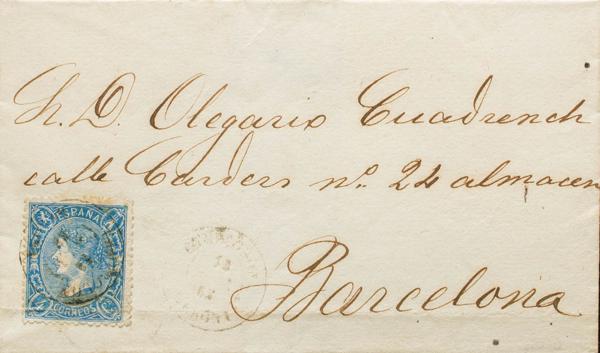 Sr. D. Olegario Cuadrench
calle Carders nº 24 almacen
Barcelona
ESPAÑA
CORREOS